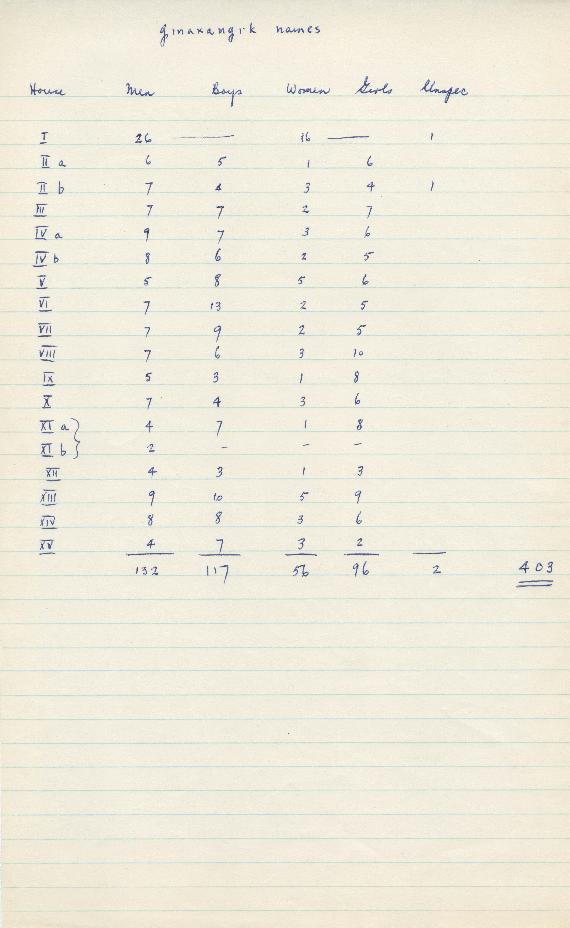 ginaxangi·k names
House Men Boys Women Girls Unspec
I 26 — 16 — 1
II a 6 5 1 6
II b 7 4 3 4 1
III 7 7 2 7
IV a 9 7 3 6
IV b 8 6 2 5
V 5 8 5 6
VI 7 13 2 5
VII 7 9 2 5
VIII 7 6 3 10
IX 5 3 1 8
X 7 4 3 6
XI a} 4 7 1 8
XI b} 2 - - -
XII 4 3 1 3
XIII 9 10 5 9
XIV 8 8 3 6
XV 4 7 3 2
132 117 56 96 2 403